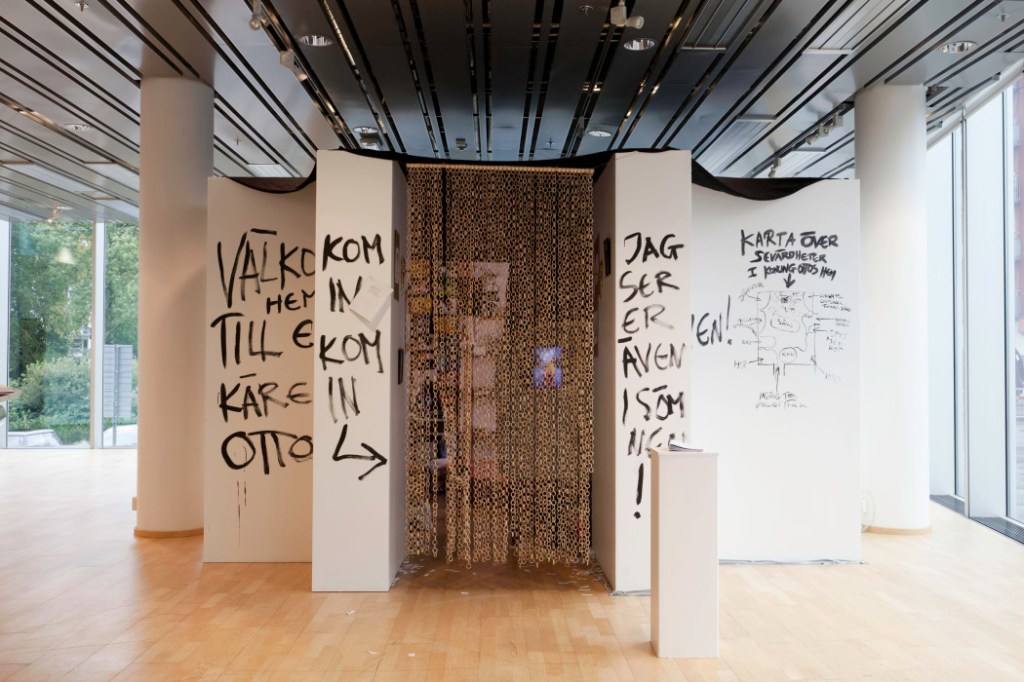 VÄLKO
HEM
TILL E
KÄRE
OTTO
KOM
IN
KOM
IN
JAG
SER
ER
ÄVEN
I SÖM
NEN
!
EN!
KARTA ÖVER
SEVÄRDHETER
I KONUNG OTTOS HEM